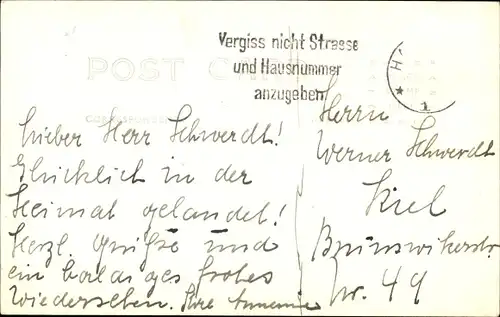 Vergiss nicht Strasse
und Hausnummer
anzugeben
POST CARD
H
* 1
Lieber Herr Schwerdt!
Glücklich in der
Heimat gelandet!
Herzl. Grüße und
ein baldiges frohes
Wiedersehen. Ihre Annemie
Herrn
Werner Schwerdt
Kiel
Brunswikerstr.
Nr. 49